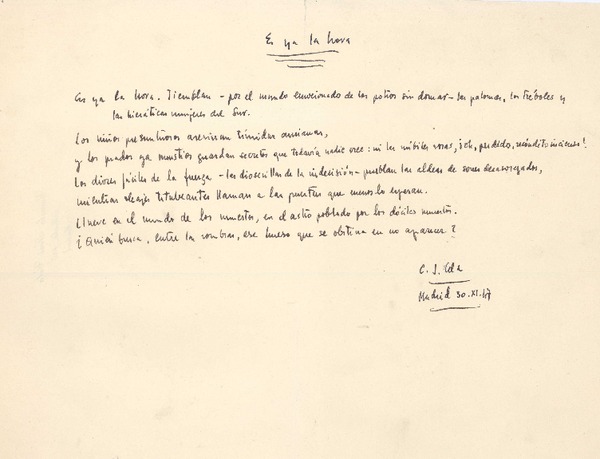 Es ya la hora
Es ya la hora. Tiemblan - por el mundo emocionado de los potros sin domar - las palomas, los tréboles y
las hieráticas mujeres del Sur.
Los niños presuntuosos asesinan tímidas ancianas,
y los prados ya mustios guardan secretos que todavía nadie cree: ni las núbiles rosas, ¡oh, perdido, recóndito incienso!
Los dioses fáciles de la fuerza - los diosecillos de la indecisión - pueblan las aldeas de sones desasosegados,
mientras viejos titubeantes llaman a las puertas que menos lo esperan.
Llueve en el mundo de los muertos, en el astro poblado por los dóciles muertos.
¿Quién busca, entre las sombras, ese hueso que se obstina en no aparecer?
C. J. Cela
Madrid 30.XI.47